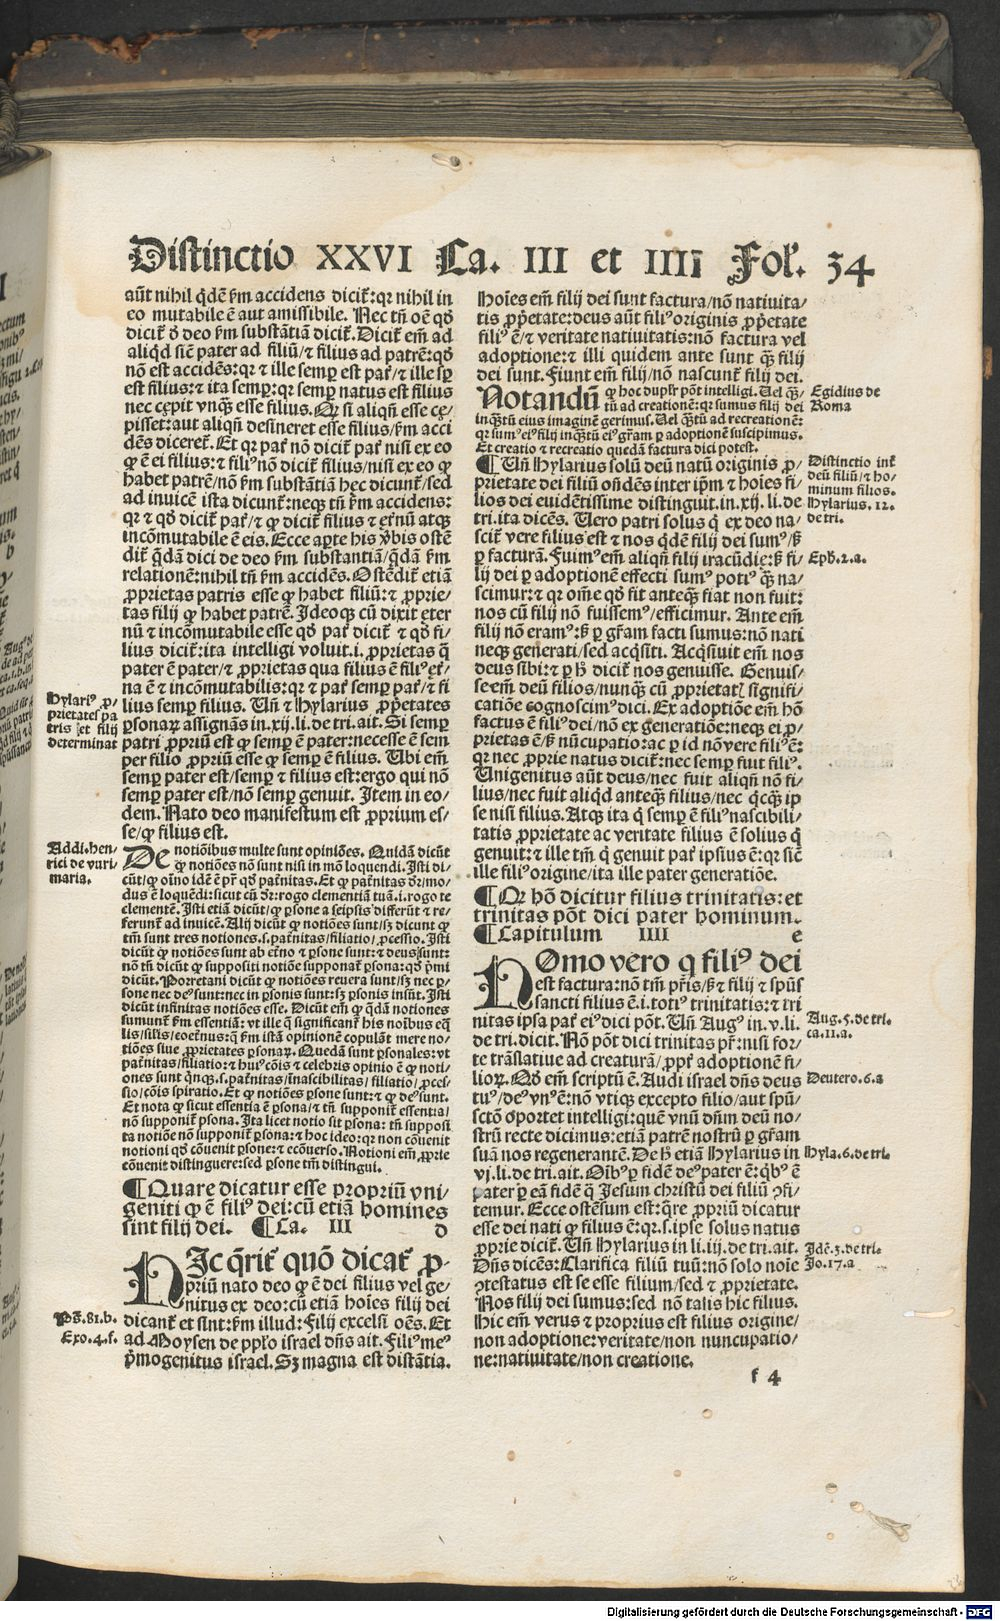 Distinctio XXVI Ca. III et IIII Fol. 34
aūt nihil q̄dē ẜm accidens dicit᷑: qꝛ nihil in
eo mutabile ē aut amissibile. Nec tn̄ oē qḋ
dicit᷑ ḋ deo ẜm substātiā dicit᷑. Dicit᷑ em̄ ad
aliqd sicē pater ad filiū/⁊ filius ad patrē: qḋ
nō est accidēs: qꝛ ⁊ ille semꝑ est pat᷑/⁊ ille sꝑ
est filius: ⁊ ita semꝑ: qꝛ semꝑ natus est filius
nec cępit vnqȝ esse filius. Qꝛ si aliqn̄ esse cę-
pisset: aut aliqn̄ desineret esse filius/ẜm acci
dēs diceret᷑. Et qꝛ pat᷑ nō dicit᷑ pat᷑ nisi ex eo
ꝙ ē ei filius: ⁊ filiꝰ nō dicit᷑ filius/nisi ex eo ꝙ
habet patrē/nō ẜm substātiā hec dicunt᷑/sed
ad inuicē ista dicunt᷑: neqꝫ tn̄ ẜm accidens:
qꝛ ⁊ qḋ dicit᷑ pat᷑/⁊ ꝙ dicit᷑ filius ⁊ et᷑nū atqꝫ
incōmutabile ē eis. Ecce aꝑte his v̄bis ostē
dit᷑ q̄dā dici de deo ẜm substantiā/q̄dā ẜm
relationē: nihil tn̄ ẜm accidēs. Ostēdit᷑ etiā
ꝓprietas patris esse ꝙ habet filiū: ⁊ ꝓprie-
tas filij ꝙ habet patrē. Ideoqꝫ cū dixit ęter
nū ⁊ incōmutabile esse qḋ pat᷑ dicit᷑ ⁊ qḋ fi-
lius dicit᷑: ita intelligi voluit. i. ꝓprietas q̄
pater ē pater/⁊ ꝓprietas qua filius ē filiꝰ et᷑-
na ē ⁊ incōmutabilis: qꝛ ⁊ pat᷑ semꝑ pat᷑/⁊ fi
lius semꝑ filius. Un̄ ⁊ Hylarius ꝓp̄etates
ꝑsonaꝝ assignās in. xij. li. de tri. ait. Si semꝑ
patri ꝓpriū est ꝙ semꝑ ē pater: necesse ē sem
per filio ꝓpriū esse ꝙ semꝑ ē filius. Ubi em̄
semꝑ pater est/semꝑ ⁊ filius est: ergo qui nō
semꝑ pater est/nō semꝑ genuit. Item in eo-
dem. Nato deo manifestum est ꝓprium es-
se/ꝙ filius est.
Hylariꝰ ꝓ-
prietates pa
tris et filij
determinat
Addi. hen-
rici de vuri-
maria.
De notiōibus multe sunt opiniōes. Quidā dicūt
ꝙ notiōes nō sunt nisi in mō loquendi. Isti di-
cūt/ꝙ oīno idē ē pr̄ qḋ pat᷑nitas. Et ꝙ pat᷑nitas dr̄/mo-
dus ē loquēdi: sicut cū dr̄: rogo clementiā tuā. i. rogo te
clementē. Isti etiā dicūt/ꝙ ꝑsone a seipsis differūt ⁊ re-
ferunt᷑ ad inuicē. Alij dicūt ꝙ notiōes sunt/sȝ dicunt ꝙ
tm̄ sunt tres notiones. s. pat᷑nitas/filiatio/ꝓcessio. Isti
dicūt ꝙ notiōes sunt ab et᷑no ⁊ ꝑsone sunt: ⁊ deus sunt:
nō tn̄ dicūt ꝙ suppositi notiōe supponat᷑ ꝑsona: qḋ p̄mi
dicūt. Porretani dicūt ꝙ notiōes reuera sunt/sȝ nec ꝑ-
sone nec deꝰ sunt: nec in ꝑsonis sunt: sȝ ꝑsonis insūt. Isti
dicūt infinitas notiōes esse. Dicūt em̄ ꝙ q̄dā notiones
sumunt᷑ ẜm essentiā: vt ille q̄ significant᷑ his noibus eq̄
lis/silis/coet᷑nus: q̄ ẜm istā opinionē copulāt mere no-
tiōes siue ꝓprietates ꝑsonaꝝ. Quedā sunt ꝑsonales: vt
pat᷑nitas/filiatio: ⁊ huiꝰ cōis ⁊ celebris opinio ē ꝙ noti-
ones sunt qnqꝫ. s. pat᷑nitas/īnascibilitas/filiatio/ꝓces-
sio/cōis spiratio. Et ꝙ notiōes ꝑsone sunt: ⁊ ꝙ deꝰ sunt.
Et nota ꝙ sicut essentia ē ꝑsona/⁊ tn̄ supponit᷑ essentia/
nō supponit᷑ ꝑsona. Ita licet notio sit ꝑsona: tn̄ supposi
ta notiōe nō supponit᷑ ꝑsona: ⁊ hoc ideo: qꝛ non cōuenit
notioni qḋ cōuenit ꝑsone: ⁊ ecōuerso. Notioni em̄ ꝓprie
cōuenit distinguere: sed ꝑsone tm̄ distingui.
¶ Quare dicatur esse propriū vni-
geniti ꝙ ē filiꝰ dei: cū etiā homines
sint filij dei. ¶ Ca. III D
HIc q̄rit᷑ quō dicat᷑ ꝓ-
priū nato deo ꝙ ē dei filius vel ge-
nitus ex deo: cū etiā hoīes filij dei
dicant᷑ et sint: ẜm illud: Filij excelsi oēs. Et
ad Moysen de ppl̄o israel dn̄s ait. Filiꝰ meꝰ
p̄mogenitus israel. Sȝ magna est distātia.
Ps̄. 81. b.
Exo. 4. f.
Hoīes em̄ filij dei sunt factura/nō nativita-
tis ꝓp̄etate: deus aūt filiꝰ originis ꝓp̄etate
filiꝰ ē/⁊ veritate nativitatis: nō factura vel
adoptione: ⁊ illi quidem ante sunt qȝ filij
dei sunt. Fiunt em̄ filij/nō nascunt᷑ filij dei.
Notandū ꝙ hoc duplr̄ pōt intelligi. Uel qȝ-
tū ad creationē: qꝛ sumus filij dei
inqȝtū eius imaginē gerimus. Uel qȝtū ad recreationē:
qꝛ sumꝰ eiꝰ filij inqȝtū eiꝰ gr̄am ꝑ adoptionē suscipimus.
Et creatio ⁊ recreatio quedā factura dici potest.
Egidius de
Roma
¶ Un̄ Hylarius solū deū natū originis ꝓ-
prietate dei filiū on̄dēs inter ip̄m ⁊ hoīes fi-
lios dei euidētissime distinguit. in. xij. li. de
tri. ita dicēs. Uero patri solus q̄ ex deo na-
scit᷑ vere filius est ⁊ nos q̄dē filij dei sumꝰ/ẞ
ꝑ facturā. Fuimꝰ em̄ aliqn̄ filij iracūdie: ẞ fi-
lij dei ꝑ adoptionē effecti sumꝰ potiꝰ qȝ na-
scimur: ⁊ qꝛ om̄e qḋ fit anteqȝ fiat non fuit:
nos cū filij nō fuissemꝰ/efficimur. Ante em̄
filij nō eramꝰ: ẞ ꝑ gr̄am facti sumus: nō nati
neqꝫ generati/sed acq̄siti. Acq̄siuit em̄ nos
deus sibi: ⁊ ꝑ ħ dicit᷑ nos genuisse. Genuis-
se em̄ deū filios/nunqȝ cū ꝓprietatꝭ signifi-
catiōe cognoscimꝰ dici. Ex adoptiōe em̄ hō
factus ē filiꝰ dei/nō ex generatiōe: neqꝫ ei ꝓ-
prietas ē/ẞ nūcupatio: ac ꝑ id nō vere filiꝰ ē:
qꝛ nec ꝓprie natus dicit᷑: nec semꝑ fuit filiꝰ.
Unigenitus aūt deus/nec fuit aliqn̄ nō fi-
lius/nec fuit aliqd anteqȝ filius/nec qcqȝ ip
se nisi filius. Atqꝫ ita q̄ semꝑ ē filiꝰ nascibili-
tatis ꝓprietate ac veritate filius ē solius q̄
genuit: ⁊ ille tm̄ q̄ genuit pat᷑ ipsius ē: qꝛ sicē
ille filiꝰ origine/ita ille pater generatiōe.
Distinctio int᷑
deū filiū/⁊ ho-
minum filios.
Hylarius. 12.
de tri.
Eph. 2. a.
¶ Qꝛ hō dicitur filius trinitatis: et
trinitas pōt dici pater hominum.
¶ Capitulum IIII e
HOmo vero q̄ filiꝰ dei
est factura: nō tm̄ pr̄is/ẞ ⁊ filij ⁊ spūs
sancti filius ē. i. totiꝰ trinitatis: ⁊ tri
nitas ipsa pat᷑ eiꝰ dici pōt. Un̄ Augꝰ in. v. li.
de tri. dicit. Nō pōt dici trinitas pr̄: nisi for-
te trāslatiue ad creaturā/ꝓpt᷑ adoptionē fi-
lioꝝ. Qḋ em̄ scriptū ē. Audi israel dn̄s deus
tuꝰ/deꝰ vnꝰ ē: nō vtiqꝫ excepto filio/aut spū-
sctō oportet intelligi: quē vnū dn̄m deū no-
strū recte dicimus: etiā patrē nostrū ꝑ gr̄am
suā nos regenerantē. De ħ etiā Hylarius in
vj. li. de tri. ait. Oībꝰ ꝑ fidē deꝰ pater ē: q̄bꝰ ē
pater ꝑ eā fidē q̄ Jesum christū dei filiū ꝯfi-
temur. Ecce ostēsum est: q̄re ꝓpriū dicatur
esse dei nati ꝙ filius ē: qꝛ. s. ipse solus natus
ꝓprie dicit᷑. Un̄ Hylarius in li. iij. de tri. ait.
Dn̄s dicēs: Clarifica filiū tuū: nō solo noīe
ꝯtestatus est se esse filium/sed ⁊ ꝓprietate.
Nos filij dei sumus: sed nō talis hic filius.
Hic em̄ verus ⁊ proprius est filius origine/
non adoptione: veritate/non nuncupatio-
ne: nativitate/non creatione.
Aug. 5. de tri.
ca. 11. a.
Deutero. 6. a
Hyla. 6. de tri.
Idē. 3. de tri.
Jo. 17. a
f 4
Digitalisierung gefördert durch die Deutsche Forschungsgemeinschaft - DFG